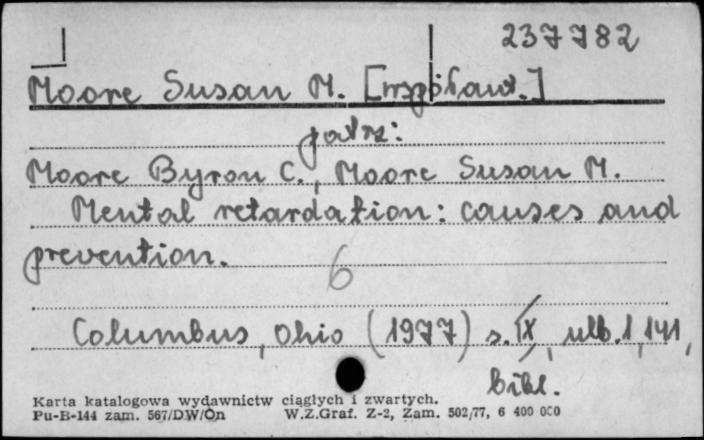 237782
Moore Susan M. [współaut.]
patrz:
Moore Byron C., Moore Susan M.
Mental retardation: causes and
prevention.
6
Columbus, Ohio (1977) s. IX, ulb. 1, 141,
bibl.
Karta katalogowa wydawnictw ciągłych i zwartych.
Pu-B-144 zam. 567/DW/On W.Z.Graf. Z-2, Zam. 502/77, 6 400 000